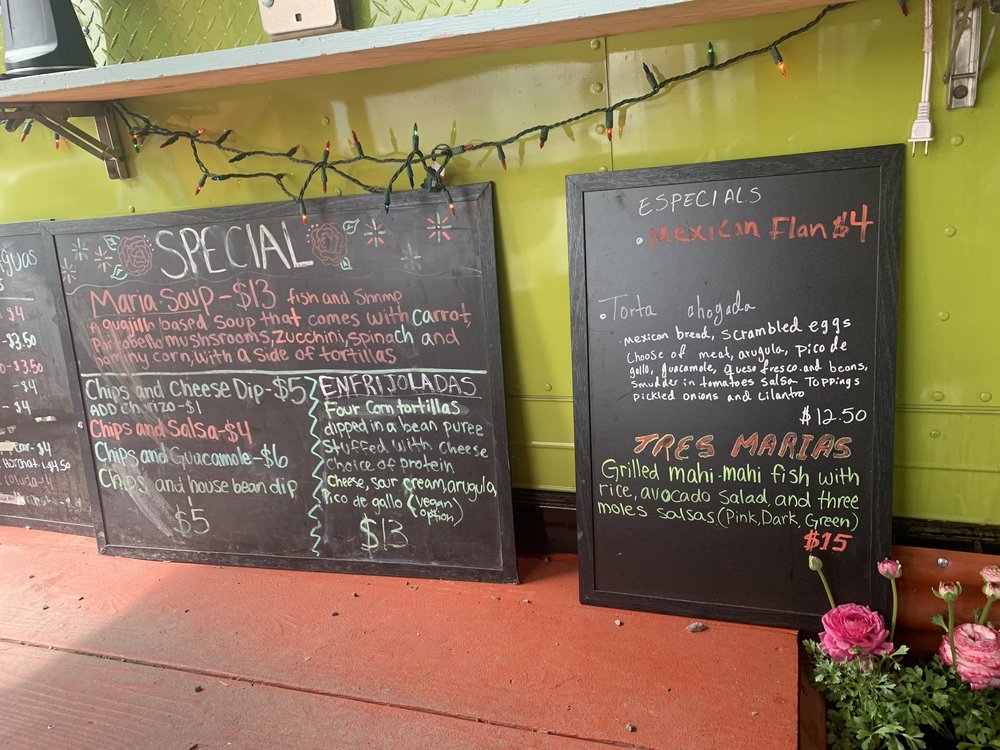 guas
$4
-$3.50
-$3.50
-$4
-$4
-$4
$4.50
SPECIAL
Maria Soup-$13 fish and Shrimp
A guajillo based soup that comes with carrot,
Portabello mushsrooms, zucchini, spinach and
hominy corn, with a side of tortillas
Chips and Cheese Dip-$5
ADD Chorizo-$1
Chips and Salsa-$4
Chips and Guacamole-$6
Chips and house bean dip
$5
ENFRIJOLADAS
Four corn tortillas
dipped in a bean puree
Stuffed with cheese
Choice of protein
Cheese, sour cream, arugula,
Pico de gallo (vegan option)
$13
ESPECIALS
.Mexican Flan $4
.Torta ahogada
.mexican bread, scrambled eggs
Choose of meat, arugula, pico de
gallo, guacamole, queso fresco.and beans,
smudder in tomatoes salsa Toppings
pickled onions and cilantro
$12.50
TRES MARIAS
Grilled mahi-mahi fish with
rice, avocado salad and three
moles salsas (Pink, Dark, Green)
$15